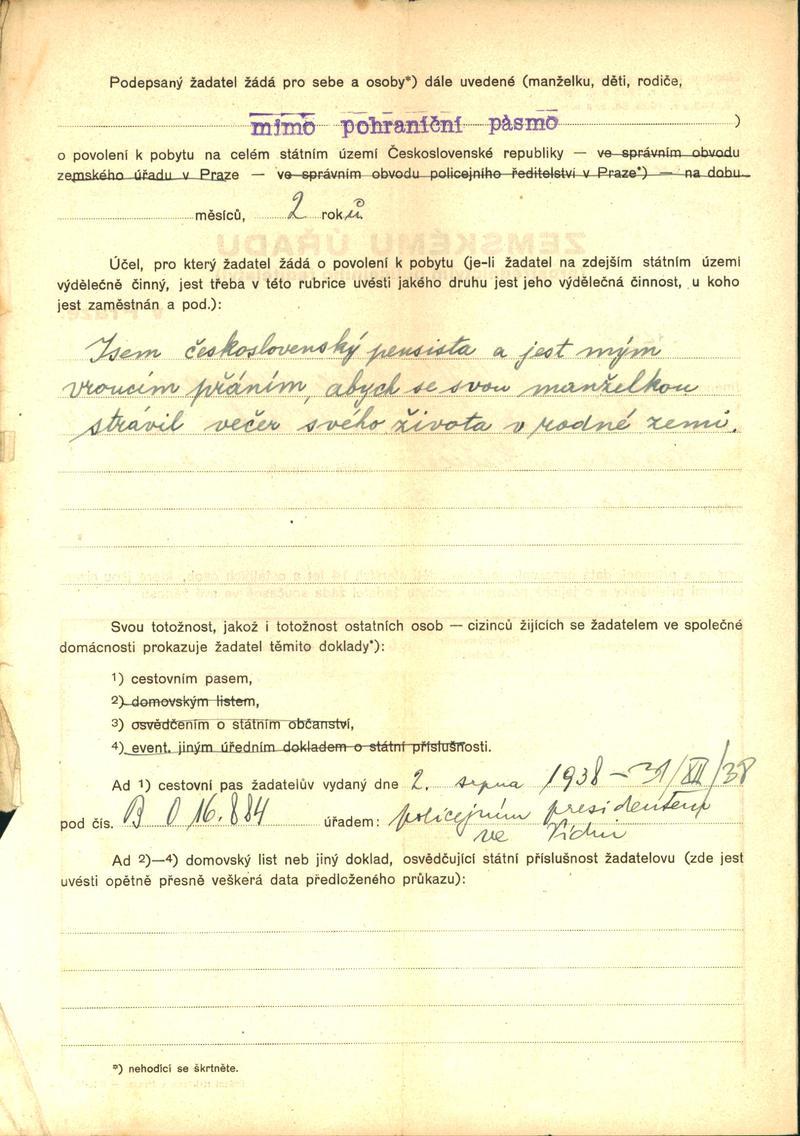 Podepsaný žadatel žádá pro sebe a osoby*) dále uvedené (manželku, děti, rodiče,
mimo pohraniční pásmo )
o povolení k pobytu na celém státním území Československé republiky — ve správním obvodu
zemského úřadu v Praze — ve správním obvodu policejního ředitelství v Praze*) — na dobu
měsíců, 2 roků
Účel, pro který žadatel žádá o povolení k pobytu (je-li žadatel na zdejším státním území
výdělečně činný, jest třeba v této rubrice uvésti jakého druhu jest jeho výdělečná činnost, u koho
jest zaměstnán a pod.):
Jsem československý pensista a jest mým
vroucím přáním, abych se svou manželkou
strávil večer svého života v rodné zemi.
Svou totožnost, jakož i totožnost ostatních osob — cizinců žijících se žadatelem ve společné
domácnosti prokazuje žadatel těmito doklady*):
1) cestovním pasem,
2) domovským listem,
3) osvědčením o státním občanství,
4) event. jiným úředním dokladem o státní příslušnosti.
Ad 1) cestovní pas žadatelův vydaný dne 2. srpna 1938 – 31/XII/38
pod čís. B 016.884 úřadem: policejním presidentem
ve Vídni
Ad 2)—4) domovský list neb jiný doklad, osvědčující státní příslušnost žadatelovu (zde jest
uvésti opětně přesně veškerá data předloženého průkazu):
*) nehodící se škrtněte.